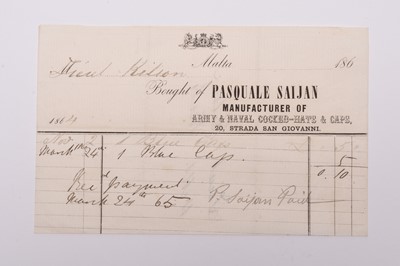 Malta 186
Lieut Wilson
Bought of PASQUALE SAIJAN
MANUFACTURER OF
ARMY & NAVAL COCKED-HATS & CAPS,
20, STRADA SAN GIOVANNI.
1864
Nov 1
March 24th 1 Blue Cap. 5
0. 10
Recd payment
March 24th 65 P. Saijan Paid